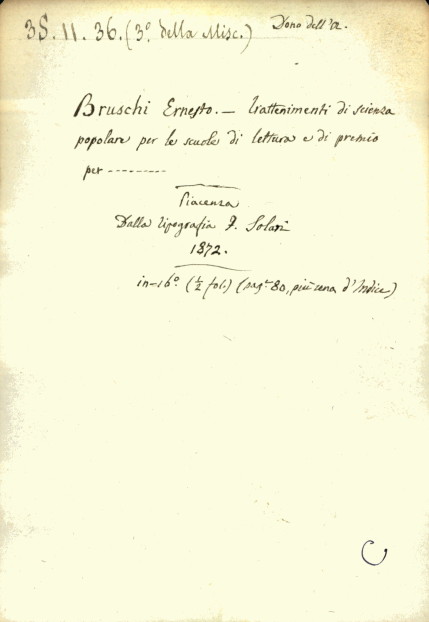 38. 11. 36. (3º della Misc.) Dono dell'A.
Bruschi Ernesto. — Trattenimenti di scienza
popolare per le scuole di lettura e di premio
per ---------
Piacenza
Dalla tipografia F. Solari
1872.
in-16º. (½ fol.) (pag.e 80, più una d'Indice.)
C